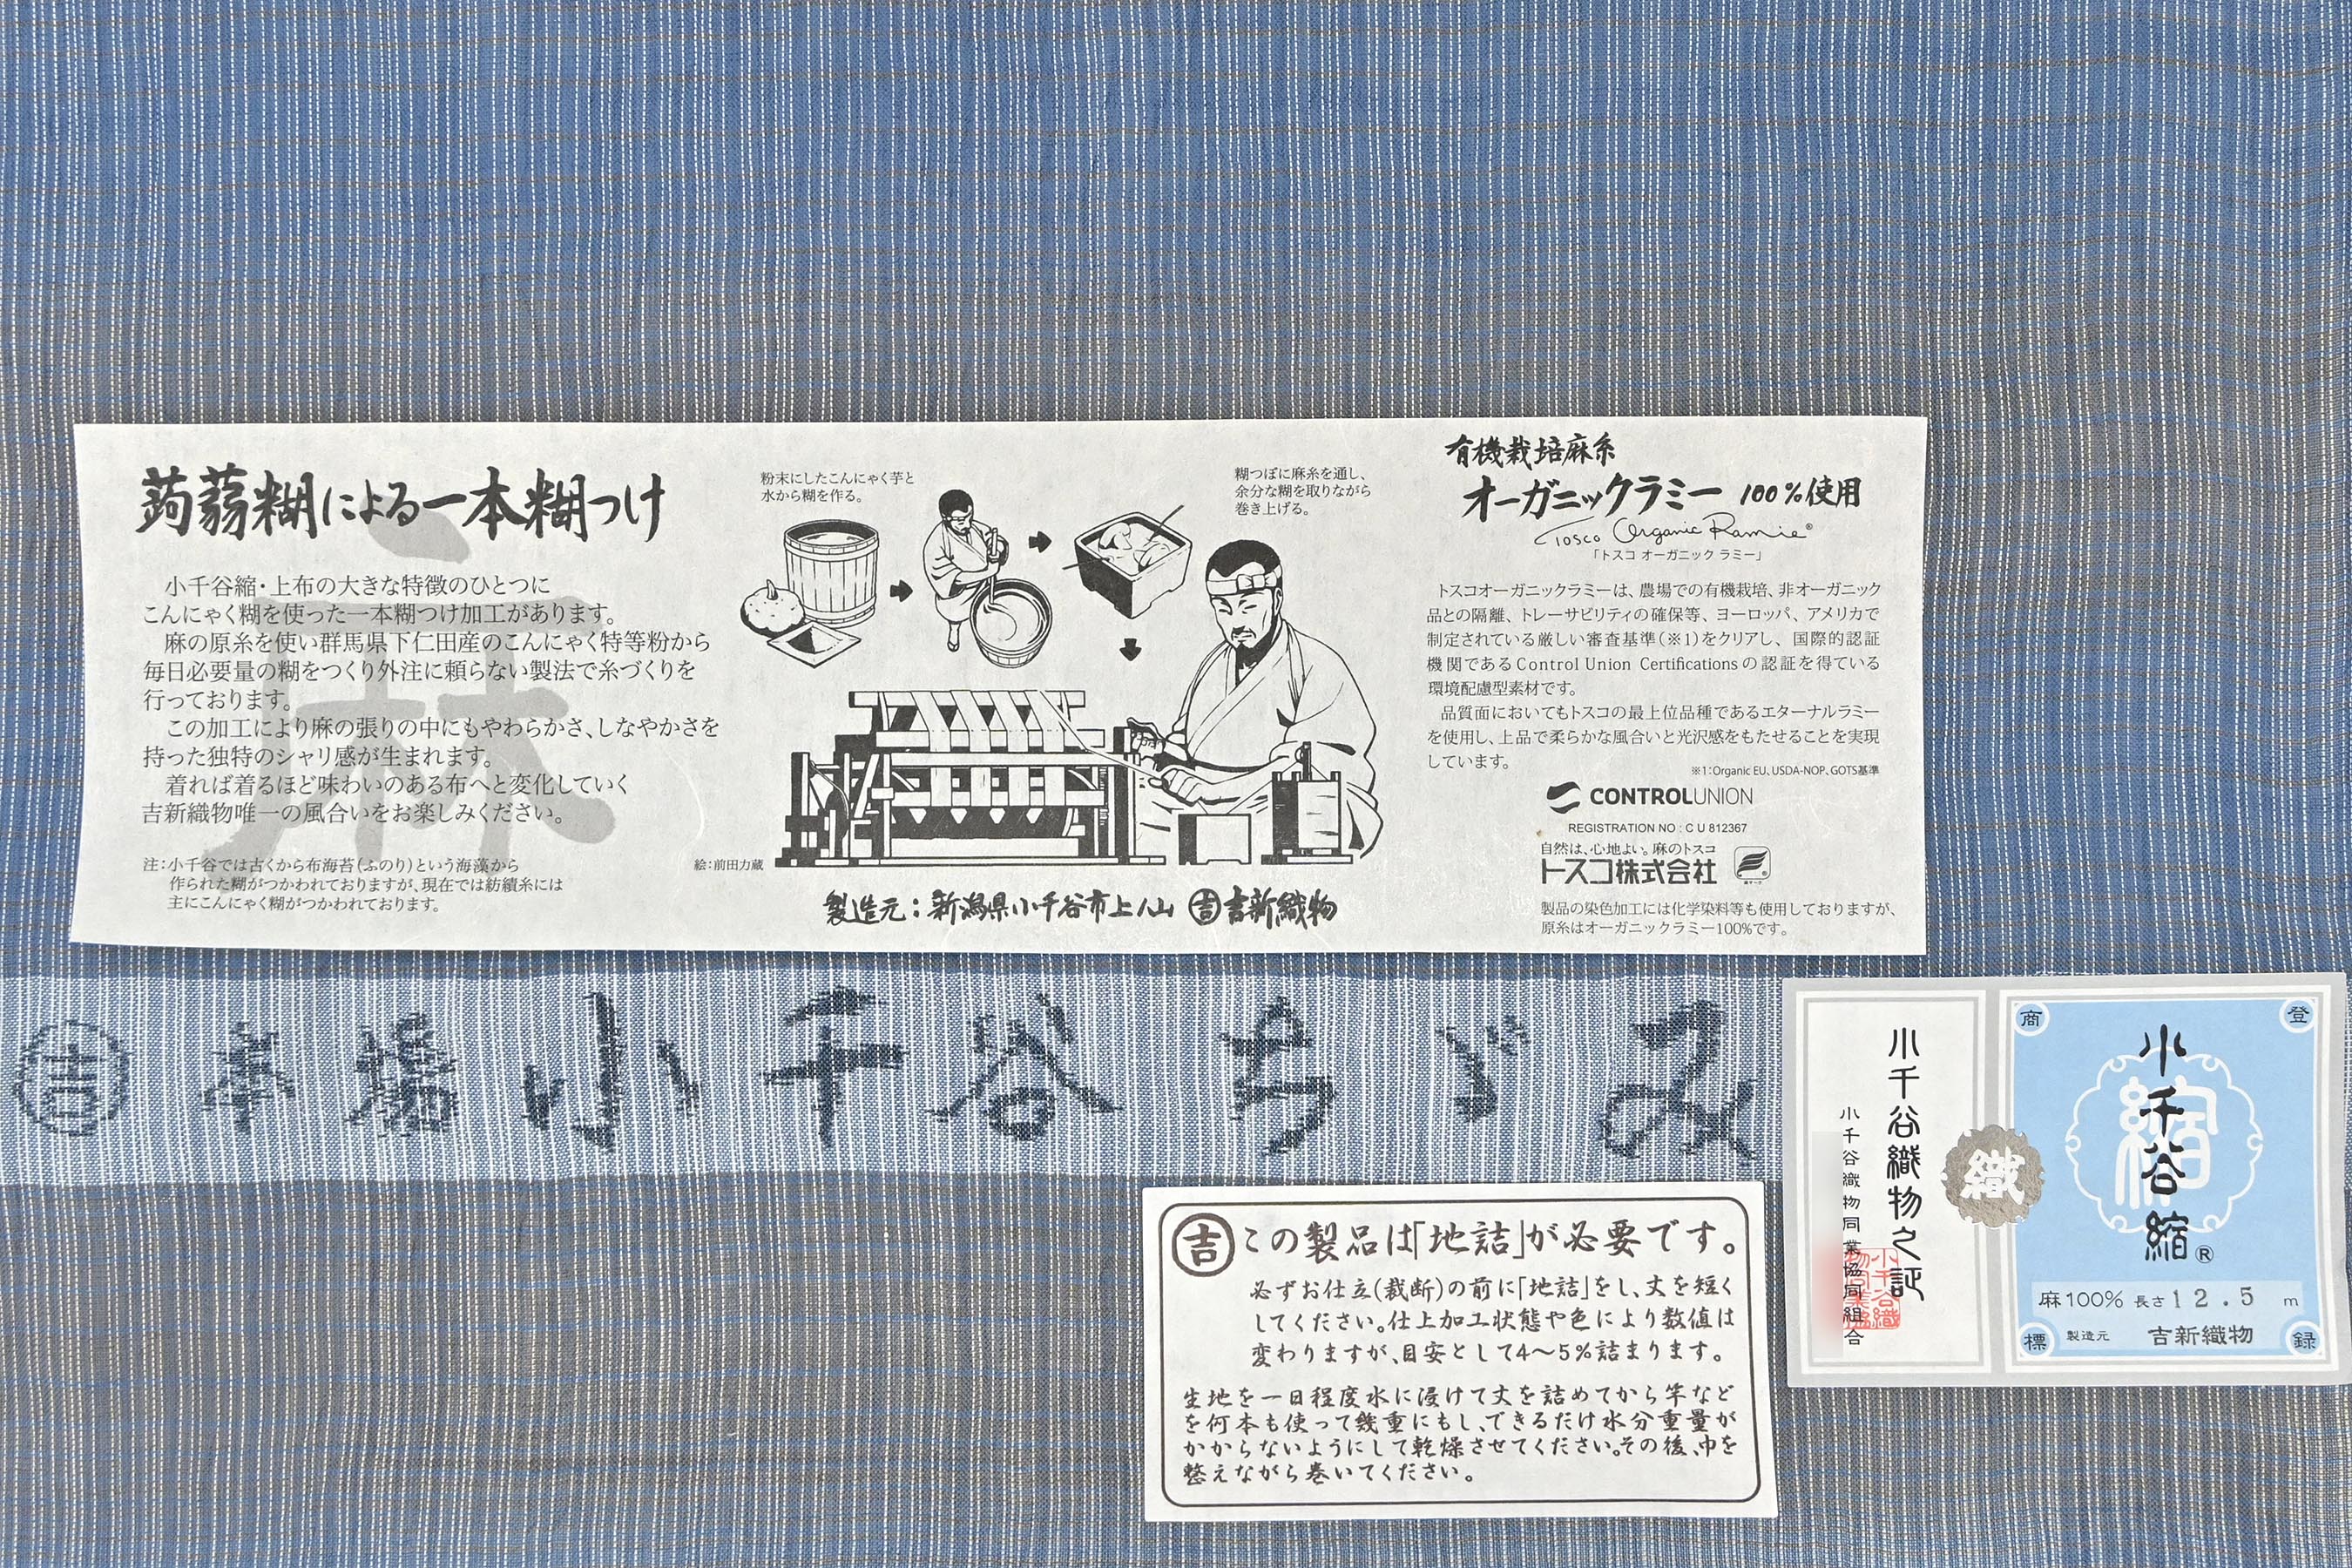 蒟蒻糊による一本糊つけ
小千谷縮・上布の大きな特徴のひとつに
こんにゃく糊を使った一本糊つけ加工があります。
麻の原糸を使い群馬県下仁田産のこんにゃく特等粉から
毎日必要量の糊をつくり外注に頼らない製法で糸づくりを
行っております。
この加工により麻の張りの中にもやわらかさ、しなやかさを
持った独特のシャリ感が生まれます。
着れば着るほど味わいのある布へと変化していく
吉新織物唯一の風合いをお楽しみください。
注：小千谷では古くから布海苔（ふのり）という海藻から
作られた糊がつかわれておりますが、現在では紡績糸には
主にこんにゃく糊がつかわれております。
麻
粉末にしたこんにゃく芋と
水から糊を作る。
糊つぼに麻糸を通し、
余分な糊を取りながら
巻き上げる。
絵：前田力蔵
製造元：新潟県小千谷市上ノ山 吉 吉新織物
有機栽培麻糸
オーガニックラミー 100%使用
Tosco Organic Ramie®
「トスコ オーガニック ラミー」
トスコオーガニックラミーは、農場での有機栽培、非オーガニック
品との隔離、トレーサビリティの確保等、ヨーロッパ、アメリカで
制定されている厳しい審査基準（※1）をクリアし、国際的認証
機関であるControl Union Certificationsの認証を得ている
環境配慮型素材です。
品質面においてもトスコの最上位品種であるエターナルラミー
を使用し、上品で柔らかな風合いと光沢感をもたせることを実現
しています。
※1：Organic EU、USDA-NOP、GOTS基準
CONTROLUNION
REGISTRATION NO : C U 812367
自然は、心地よい。麻のトスコ
トスコ株式会社
製品の染色加工には化学染料等も使用しておりますが、
原糸はオーガニックラミー100%です。
吉 本場小千谷ちゞみ
小千谷織物之証
小千谷織物同業協同組合
織
登録商標
縮
小千谷縮®
麻100% 長さ12.5 m
製造元 吉新織物
吉 この製品は「地詰」が必要です。
必ずお仕立(裁断)の前に「地詰」をし、丈を短く
してください。仕上加工状態や色により数値は
変わりますが、目安として4～5%詰まります。
生地を一日程度水に浸けて丈を詰めてから竿など
を何本も使って幾重にもし、できるだけ水分重量が
かからないようにして乾燥させてください。その後、巾を
整えながら巻いてください。